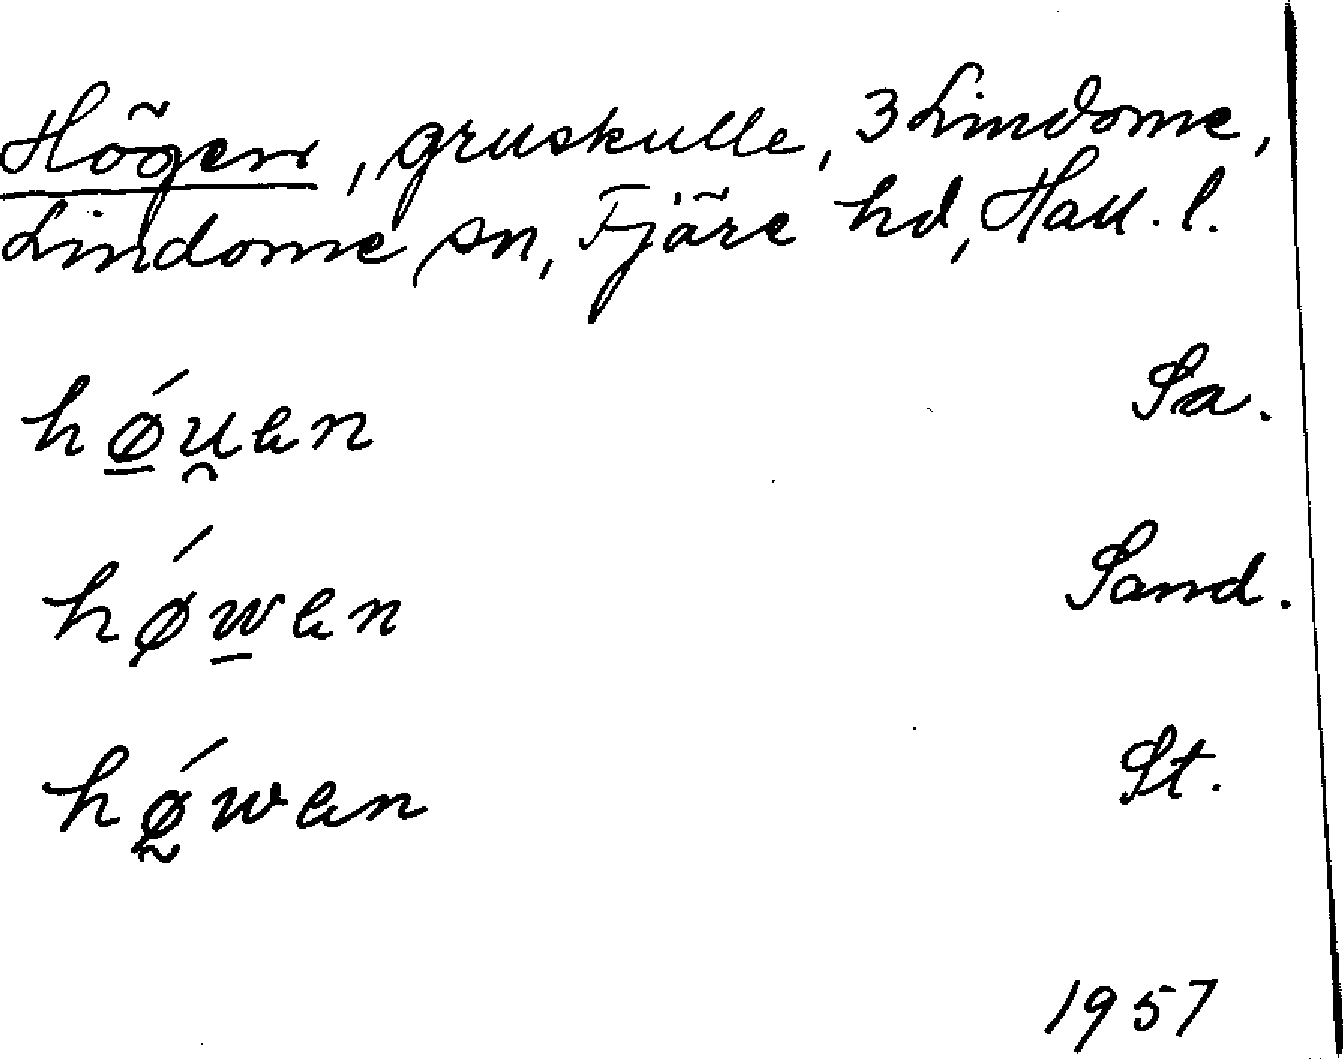 Högen, gruskulle, 3 Lindome,
Lindome sn, Fjäre hd, Hall. l.
hǿ̲u̯en Sa.
høẃ̲en Sand.
hǿ̰wen St.
1957